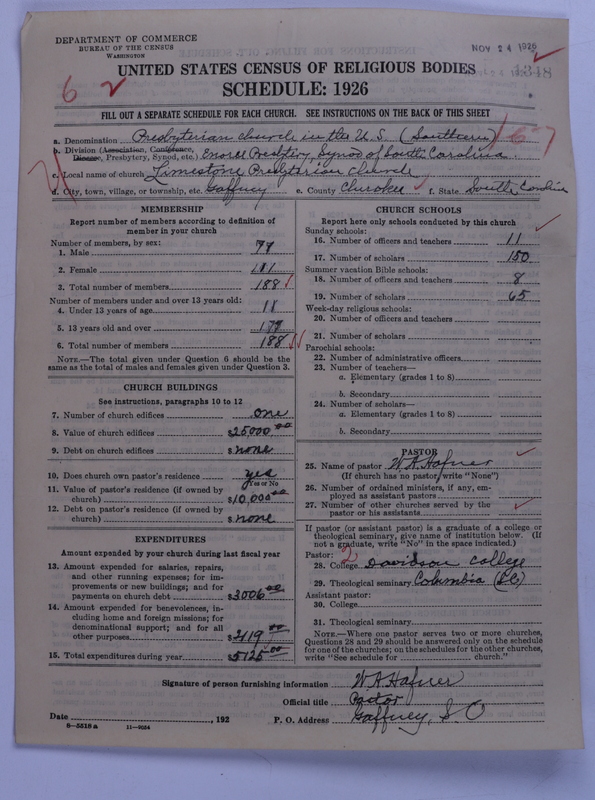 DEPARTMENT OF COMMERCE
BUREAU OF THE CENSUS
WASHINGTON
NOV 24 1926
1348
UNITED STATES CENSUS OF RELIGIOUS BODIES
SCHEDULE: 1926
6 2
FILL OUT A SEPARATE SCHEDULE FOR EACH CHURCH. SEE INSTRUCTIONS ON THE BACK OF THIS SHEET
a. Denomination Presbyterian church in the U.S. (Southern)
b. Division (Association, Conference, Diocese, Presbytery, Synod, etc.) Enoree Presbytery, Synod of South Carolina
c. Local name of church Limestone Presbyterian church
d. City, town, village, or township, etc. Gaffney e. County Cherokee f. State South Carolina
MEMBERSHIP
Report number of members according to definition of
member in your church
Number of members, by sex:
1. Male 77
2. Female 111
3. Total number of members 188
Number of members under and over 13 years old:
4. Under 13 years of age 11
5. 13 years old and over 177
6. Total number of members 188
NOTE.—The total given under Question 6 should be the
same as the total of males and females given under Question 3.
CHURCH BUILDINGS
See instructions, paragraphs 10 to 12
7. Number of church edifices one
8. Value of church edifices $25000.00
9. Debt on church edifices $none
10. Does church own pastor's residence? yes
Yes or No
11. Value of pastor's residence (if owned by
church) $10,000.00
12. Debt on pastor's residence (if owned by
church) $none
EXPENDITURES
Amount expended by your church during last fiscal year
13. Amount expended for salaries, repairs,
and other running expenses; for im-
provements or new buildings; and for
payments on church debt $3006.00
14. Amount expended for benevolences, in-
cluding home and foreign missions; for
denominational support; and for all
other purposes $2119.00
15. Total expenditures during year $5125.00
CHURCH SCHOOLS
Report here only schools conducted by this church
Sunday schools:
16. Number of officers and teachers 11
17. Number of scholars 150
Summer vacation Bible schools:
18. Number of officers and teachers 8
19. Number of scholars 65
Week-day religious schools:
20. Number of officers and teachers
21. Number of scholars
Parochial schools:
22. Number of administrative officers
23. Number of teachers—
a. Elementary (grades 1 to 8)
b. Secondary
24. Number of scholars—
a. Elementary (grades 1 to 8)
b. Secondary
PASTOR
25. Name of pastor W A Hafner
(If church has no pastor, write "None")
26. Number of ordained ministers, if any, em-
ployed as assistant pastors
27. Number of other churches served by the
pastor or his assistants
If pastor (or assistant pastor) is a graduate of a college or
theological seminary, give name of institution below. (If
not a graduate, write "No" in the space indicated.)
Pastor: 2
28. College Davidson College
29. Theological seminary Columbia (SC)
Assistant pastor:
30. College
31. Theological seminary
NOTE.—Where one pastor serves two or more churches,
Questions 28 and 29 should be answered only on the schedule
for one of the churches; on the schedules for the other churches,
write "See schedule for church."
Signature of person furnishing information W A Hafner
Official title Pastor
Date , 192 P. O. Address Gaffney, S C
6—5518 a 11—9024